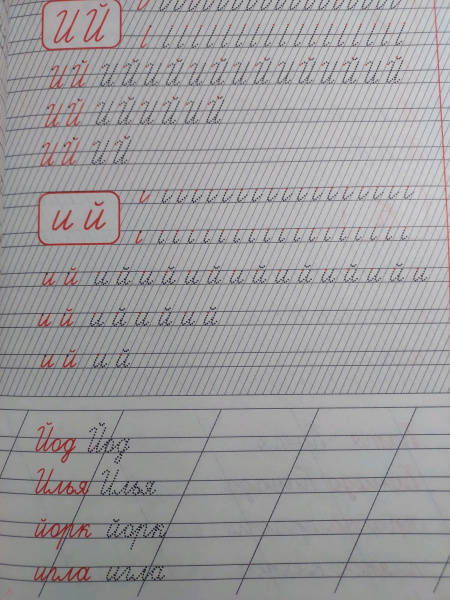 И Й
И Й И Й И Й И Й И Й И Й И Й И Й
И Й И Й И Й И Й
И Й И Й
и й
и й и й и й и й и й и й и й и й и
и й и й и й и й
и й и й
Йод Йод
Илья Илья
йорк йорк
игла игла